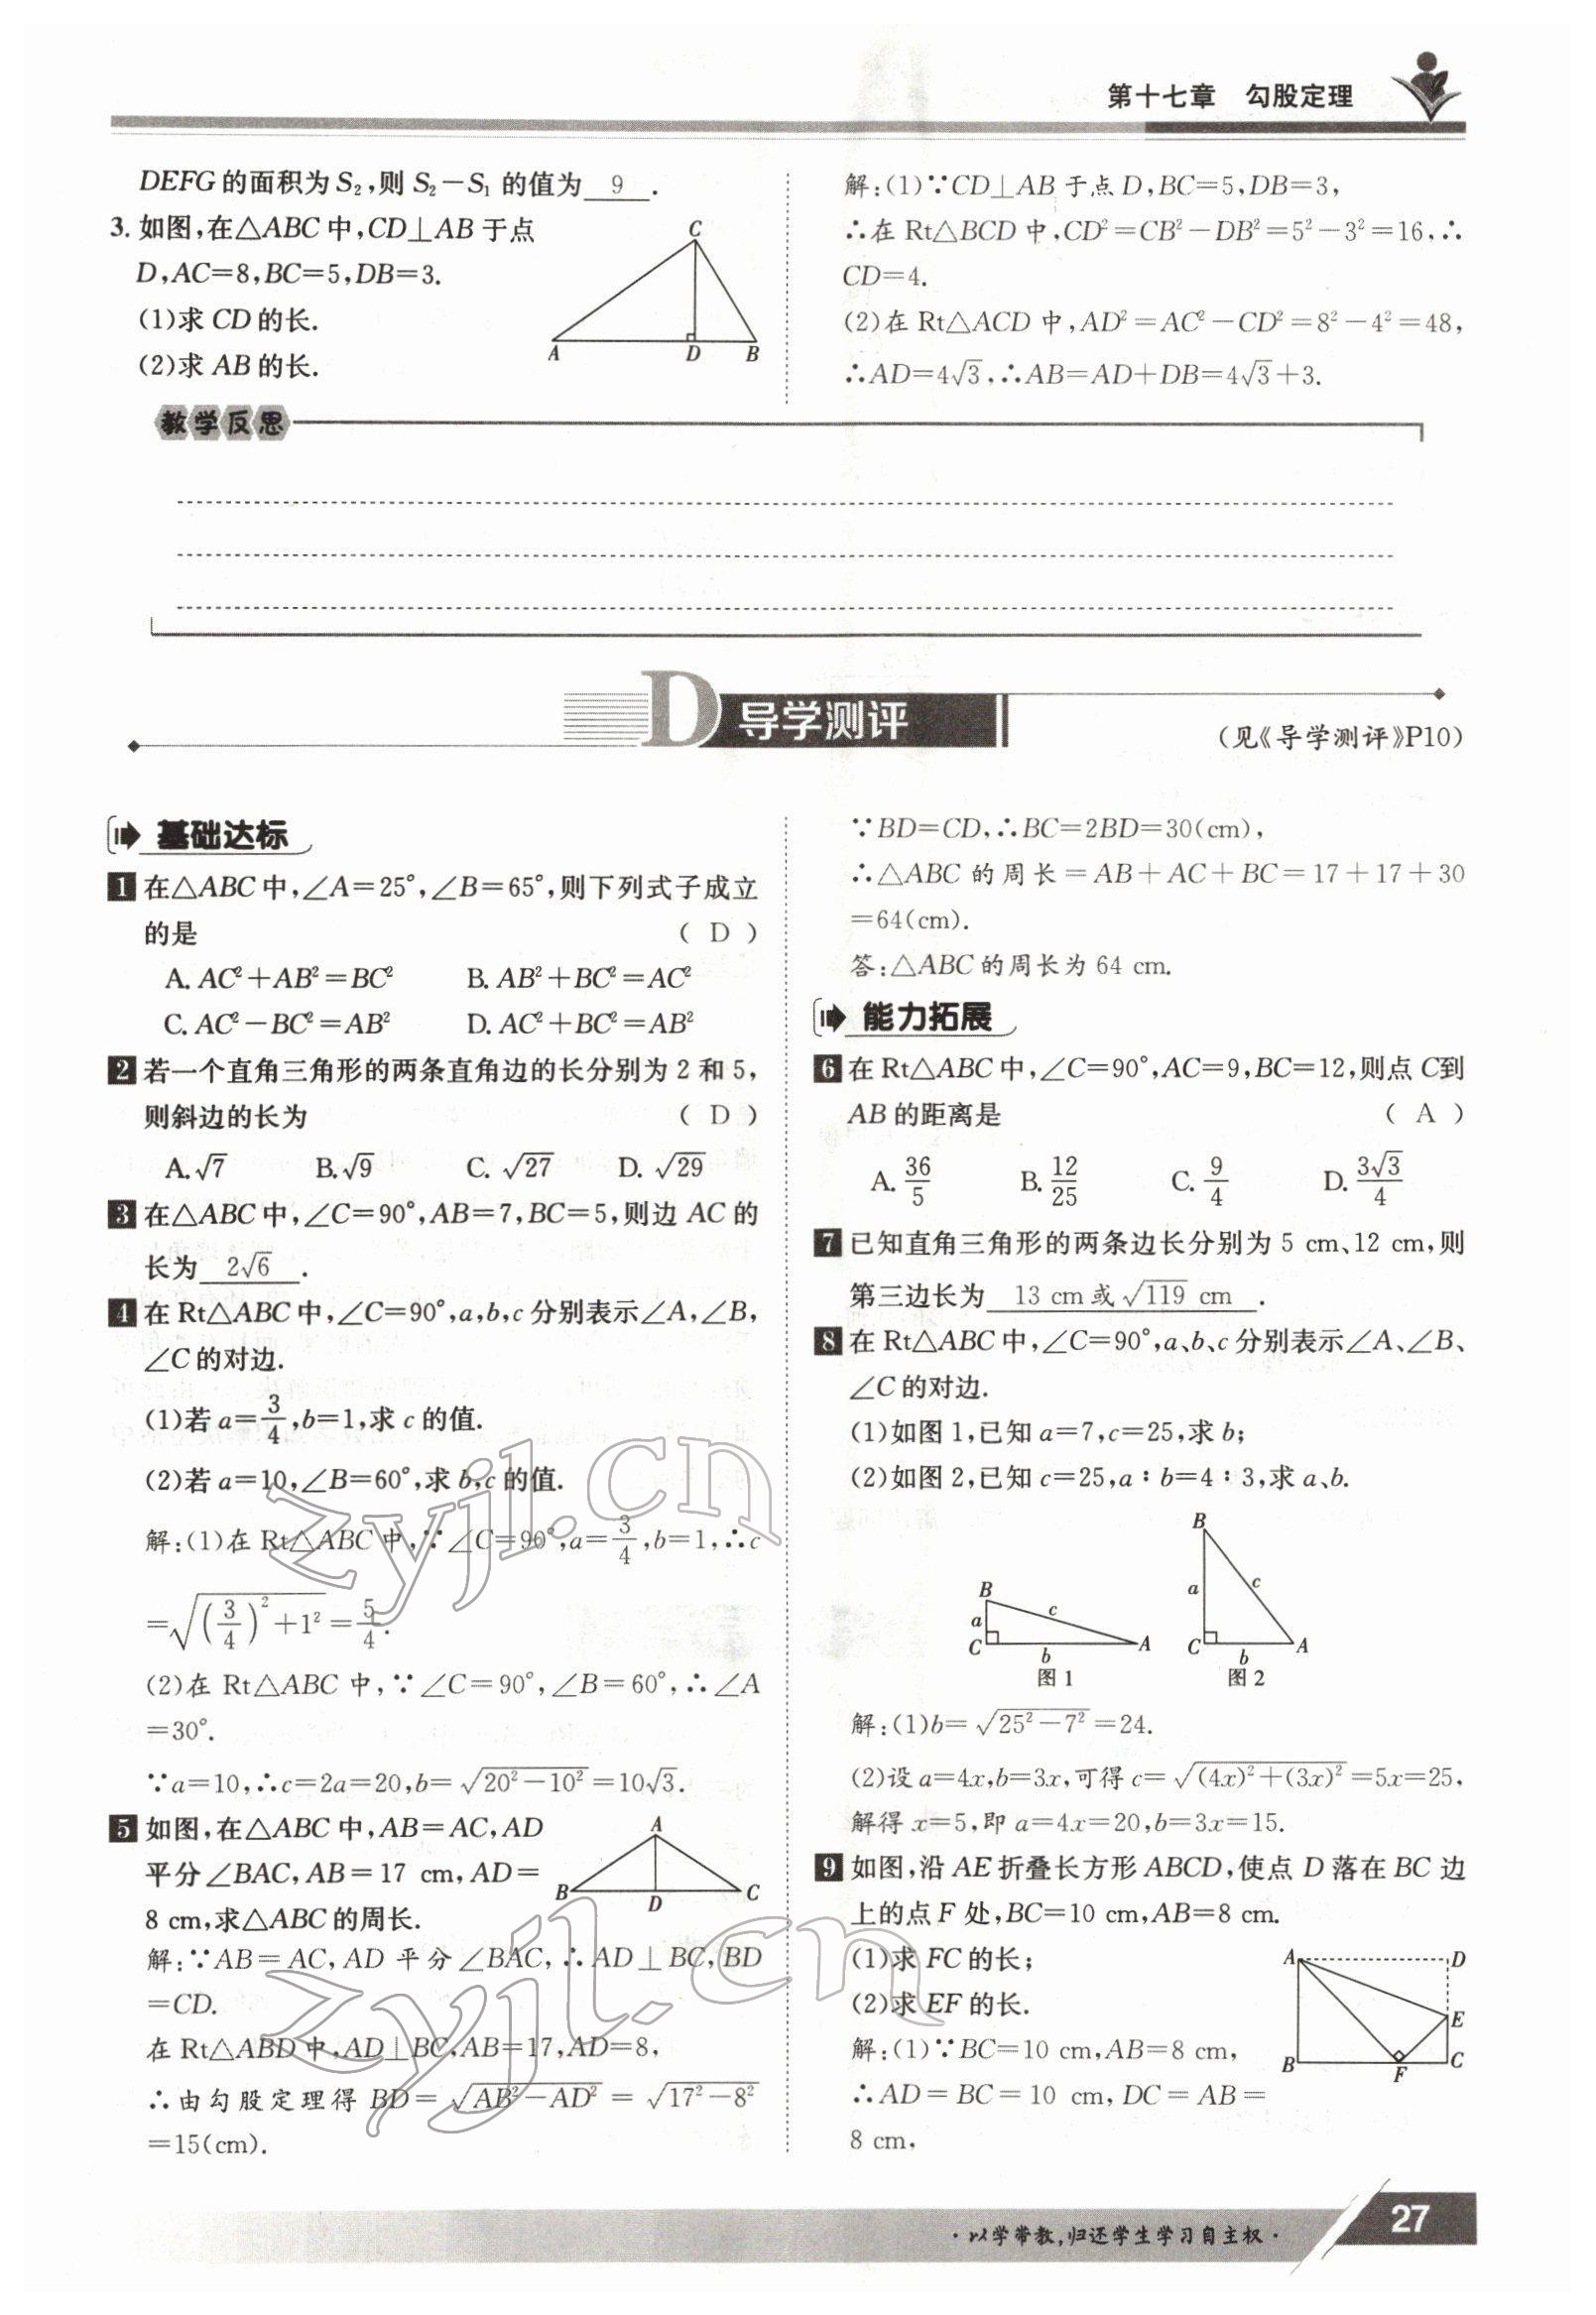 第十七章 勾股定理
DEFG的面积为S₂,则S₂-S₁的值为 9 .
3. 如图,在△ABC中,CD⊥AB于点
D,AC=8,BC=5,DB=3.
(1)求CD的长.
(2)求AB的长.
C
A D B
解:(1)∵CD⊥AB于点D,BC=5,DB=3,
∴在Rt△BCD中,CD²=CB²-DB²=5²-3²=16,∴
CD=4.
(2)在Rt△ACD中,AD²=AC²-CD²=8²-4²=48,
∴AD=4√3,∴AB=AD+DB=4√3+3.
教学反思
D 导学测评
(见《导学测评》P10)
基础达标
1 在△ABC中,∠A=25°,∠B=65°,则下列式子成立
的是 ( D )
A. AC²+AB²=BC² B. AB²+BC²=AC²
C. AC²-BC²=AB² D. AC²+BC²=AB²
2 若一个直角三角形的两条直角边的长分别为2和5,
则斜边的长为 ( D )
A.√7 B.√9 C. √27 D. √29
3 在△ABC中,∠C=90°,AB=7,BC=5,则边AC的
长为 2√6 .
4 在Rt△ABC中,∠C=90°,a,b,c分别表示∠A,∠B,
∠C的对边.
(1)若a=3/4,b=1,求c的值.
(2)若a=10,∠B=60°,求b,c的值.
解:(1)在Rt△ABC中,∵∠C=90°,a=3/4,b=1,∴c
=√((3/4)²+1²)=5/4.
(2)在Rt△ABC中,∵∠C=90°,∠B=60°,∴∠A
=30°.
∵a=10,∴c=2a=20,b=√(20²-10²)=10√3.
5 如图,在△ABC中,AB=AC,AD
平分∠BAC,AB=17 cm,AD=
8 cm,求△ABC的周长.
A
B D C
解:∵AB=AC,AD平分∠BAC,∴AD⊥BC,BD
=CD.
在Rt△ABD中,AD⊥BC,AB=17,AD=8,
∴由勾股定理得BD=√(AB²-AD²)=√(17²-8²)
=15(cm).
∵BD=CD,∴BC=2BD=30(cm),
∴△ABC的周长=AB+AC+BC=17+17+30
=64(cm).
答:△ABC的周长为64 cm.
能力拓展
6 在Rt△ABC中,∠C=90°,AC=9,BC=12,则点C到
AB的距离是 ( A )
A. 36/5 B. 12/25 C. 9/4 D. 3√3/4
7 已知直角三角形的两条边长分别为5 cm、12 cm,则
第三边长为 13 cm或√119 cm .
8 在Rt△ABC中,∠C=90°,a、b、c分别表示∠A、∠B、
∠C的对边.
(1)如图1,已知a=7,c=25,求b;
(2)如图2,已知c=25,a∶b=4∶3,求a、b.
B a c C b A 图1
B a c C b A 图2
解:(1)b=√(25²-7²)=24.
(2)设a=4x,b=3x,可得c=√((4x)²+(3x)²)=5x=25,
解得x=5,即a=4x=20,b=3x=15.
9 如图,沿AE折叠长方形ABCD,使点D落在BC边
上的点F处,BC=10 cm,AB=8 cm.
(1)求FC的长;
(2)求EF的长.
A D
E
B F C
解:(1)∵BC=10 cm,AB=8 cm,
∴AD=BC=10 cm,DC=AB=
8 cm,
zyjl.cn
zyjl.cn
·以学带教,归还学生学习自主权·
27